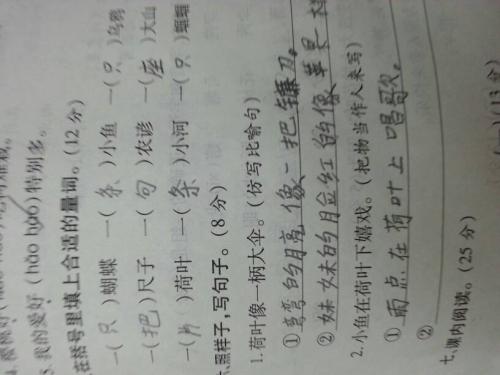 我的爱好(hǎo hào)特别多。
在括号里填上合适的量词。(12分)
一(只)蝴蝶 一(条)小鱼 一(只)乌鸦
一(把)尺子 一(句)农谚 一(座)大山
一(片)荷叶 一(条)小河 一(只)
照样子,写句子。(8分)
1.荷叶像一柄大伞。(仿写比喻句)
①弯弯的月亮像一把镰刀。
②妹妹的脸红的像苹果一样
2.小鱼在荷叶下嬉戏。(把物当作人来写)
①雨点在荷叶上唱歌。
②
七、课内阅读。(25分)
(13分)